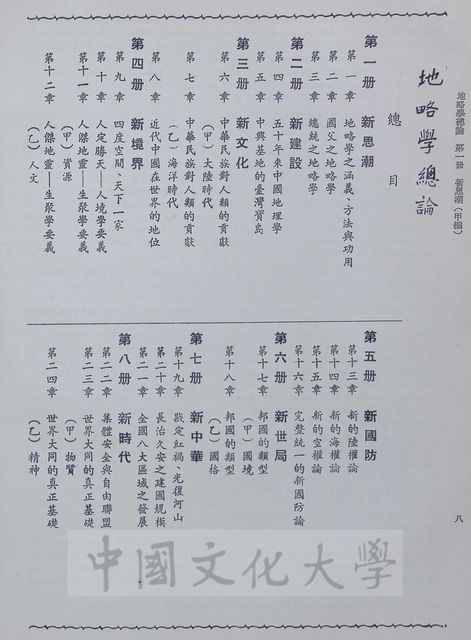 地略學總論 第一冊 新思潮(甲編)
八
地略學總論
總目
第一册 新思潮
第一章 地略學之涵義、方法與功用
第二章 國父之地略學
第三章 總統之地略學
第二册 新建設
第四章 五十年來中國地理學
第五章 中興基地的臺灣寶島
第三册 新文化
第六章 中華民族對人類的貢獻
(甲)大陸時代
第七章 中華民族對人類的貢獻
(乙)海洋時代
第八章 近代中國在世界的地位
第四册 新境界
第九章 四度空間、天下一家
第十章 人定勝天—人境學要義
第十一章 人傑地靈—生聚學要義
(甲)資源
第十二章 人傑地靈—生聚學要義
(乙)人文
第五册 新國防
第十三章 新的陸權論
第十四章 新的海權論
第十五章 新的空權論
第十六章 完整統一的新國防論
第六册 新世局
第十七章 邦國的類型
(甲)國境
第十八章 邦國的類型
(乙)國格
第七册 新中華
第十九章 戡定紅禍、光復河山
第二十章 長治久安之建國規模
第二一章 全國八大區域之發展
第八册 新時代
第二二章 集體安全與自由聯盟
第二三章 世界大同的真正基礎
(甲)物質
第二四章 世界大同的真正基礎
(乙)精神
中國文化大學